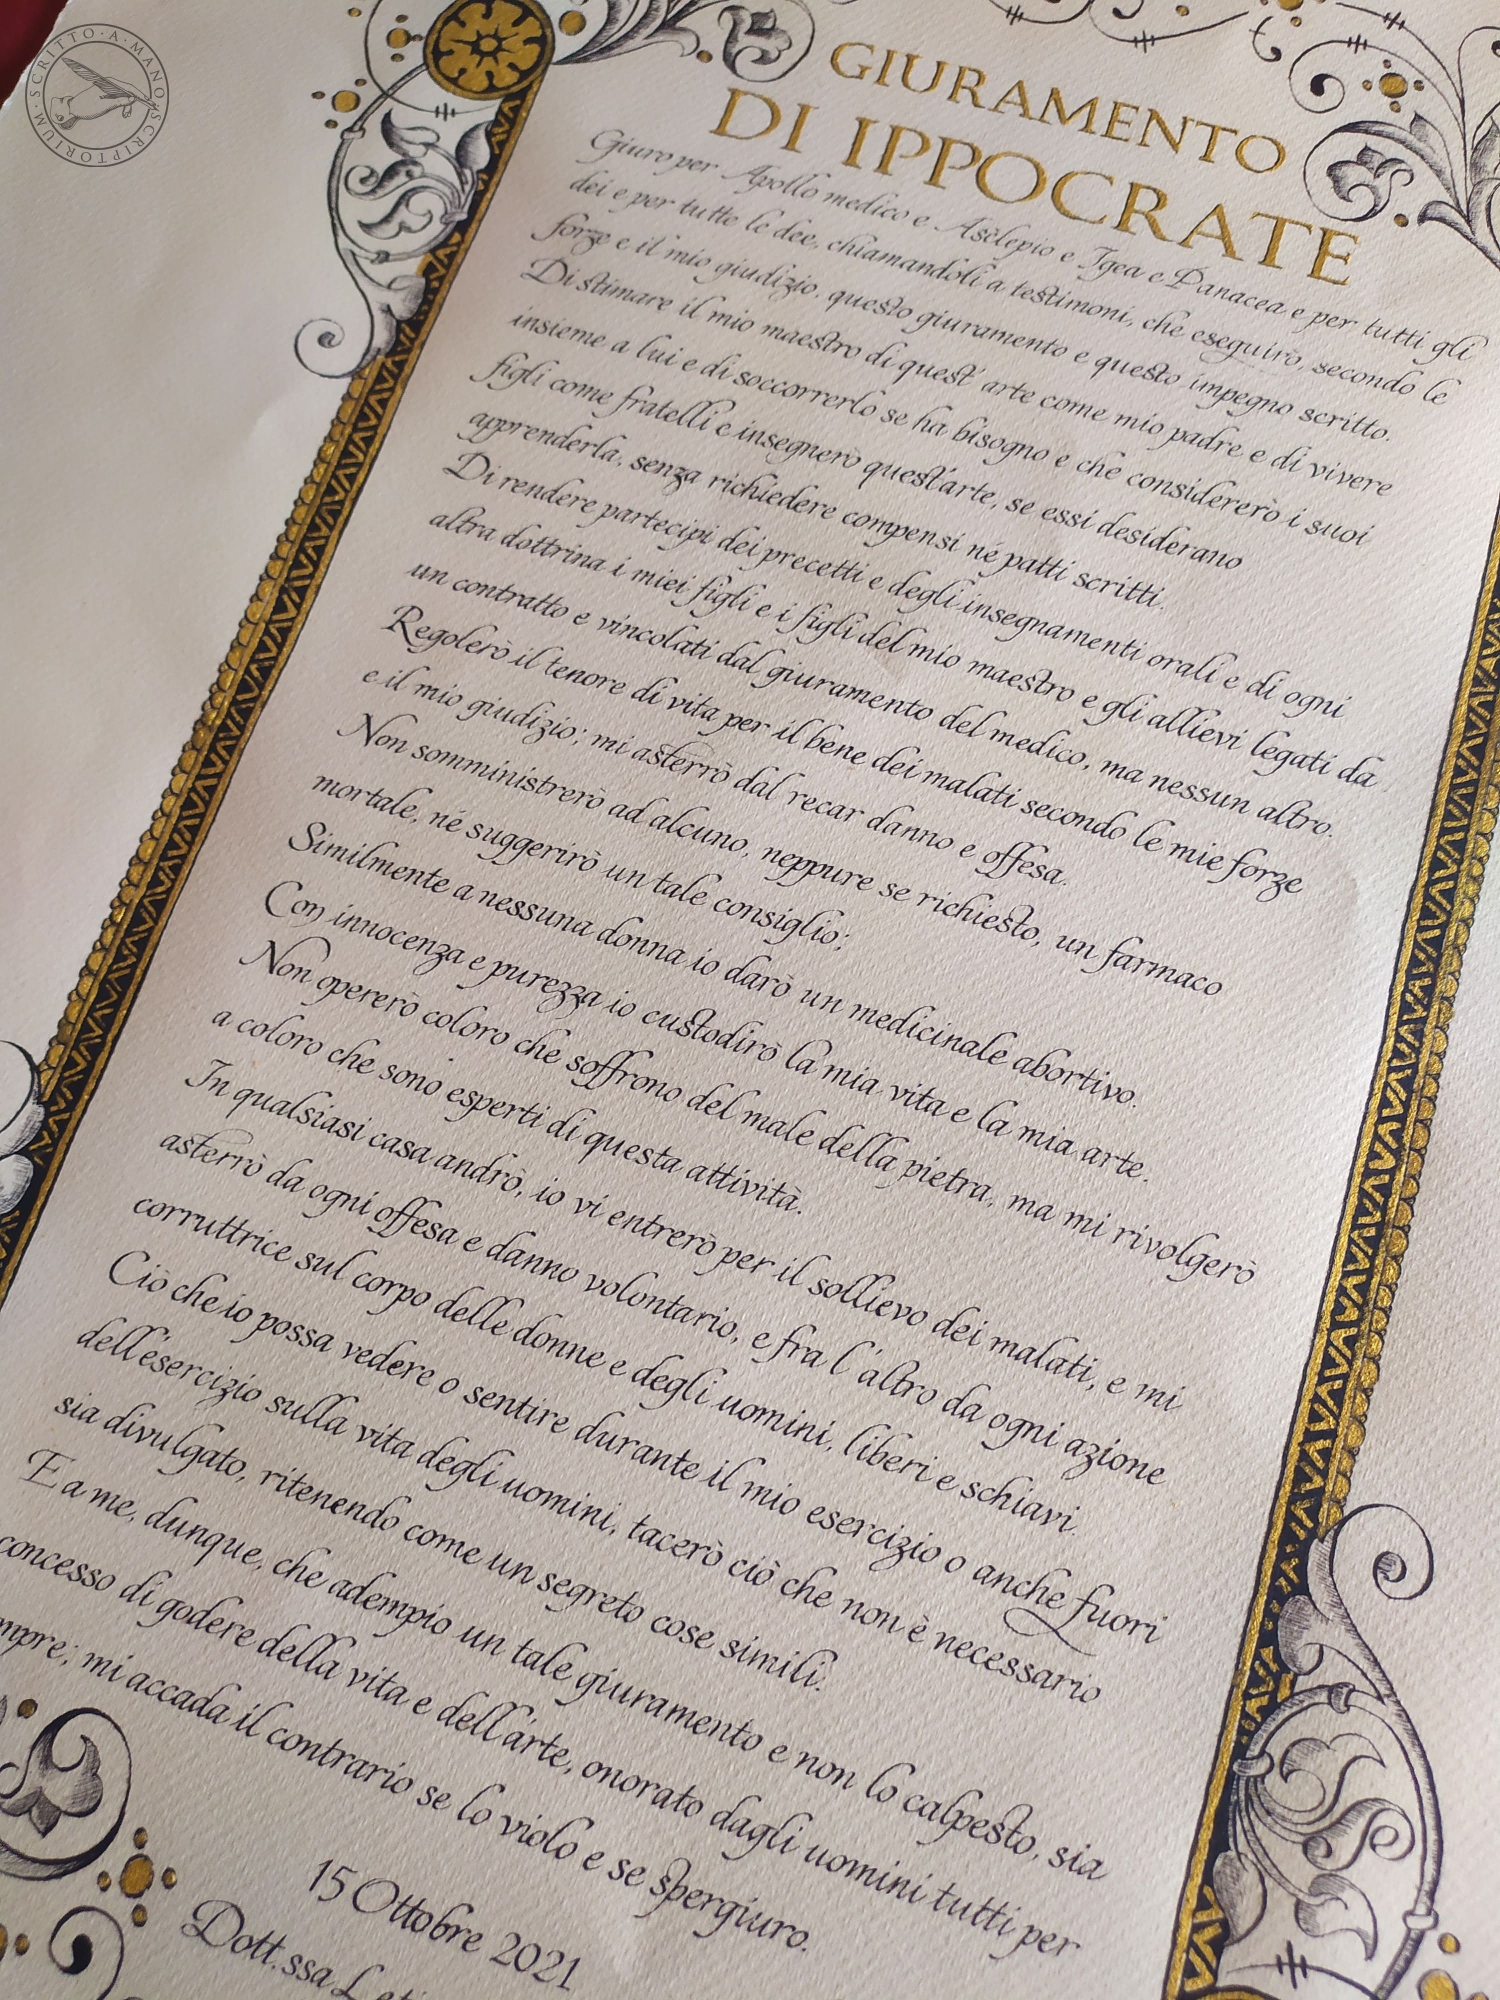 SCRITTO·A·MANO·SCRIPTORIUM·
GIURAMENTO
DI IPPOCRATE
Giuro per Apollo medico e Asclepio e Igea e Panacea e per tutti gli
dei e per tutte le dee, chiamandoli a testimoni, che eseguirò, secondo le
forze e il mio giudizio, questo giuramento e questo impegno scritto.
Di stimare il mio maestro di quest' arte come mio padre e di vivere
insieme a lui e di soccorrerlo se ha bisogno e che considererò i suoi
figli come fratelli e insegnerò quest'arte, se essi desiderano
apprenderla, senza richiedere compensi né patti scritti.
Di rendere partecipi dei precetti e degli insegnamenti orali e di ogni
altra dottrina i miei figli e i figli del mio maestro e gli allievi legati da
un contratto e vincolati dal giuramento del medico, ma nessun altro.
Regolerò il tenore di vita per il bene dei malati secondo le mie forze
e il mio giudizio; mi asterrò dal recar danno e offesa.
Non somministrerò ad alcuno, neppure se richiesto, un farmaco
mortale, né suggerirò un tale consiglio;
Similmente a nessuna donna io darò un medicinale abortivo.
Con innocenza e purezza io custodirò la mia vita e la mia arte.
Non opererò coloro che soffrono del male della pietra, ma mi rivolgerò
a coloro che sono esperti di questa attività.
In qualsiasi casa andrò, io vi entrerò per il sollievo dei malati, e mi
asterrò da ogni offesa e danno volontario, e fra l' altro da ogni azione
corruttrice sul corpo delle donne e degli uomini, liberi e schiavi.
Ciò che io possa vedere o sentire durante il mio esercizio o anche fuori
dell'esercizio sulla vita degli uomini, tacerò ciò che non è necessario
sia divulgato, ritenendo come un segreto cose simili.
E a me, dunque, che adempio un tale giuramento e non lo calpesto, sia
concesso di godere della vita e dell'arte, onorato dagli uomini tutti per
mpre; mi accada il contrario se lo violo e se spergiuro.
15 Ottobre 2021
Dott.ssa